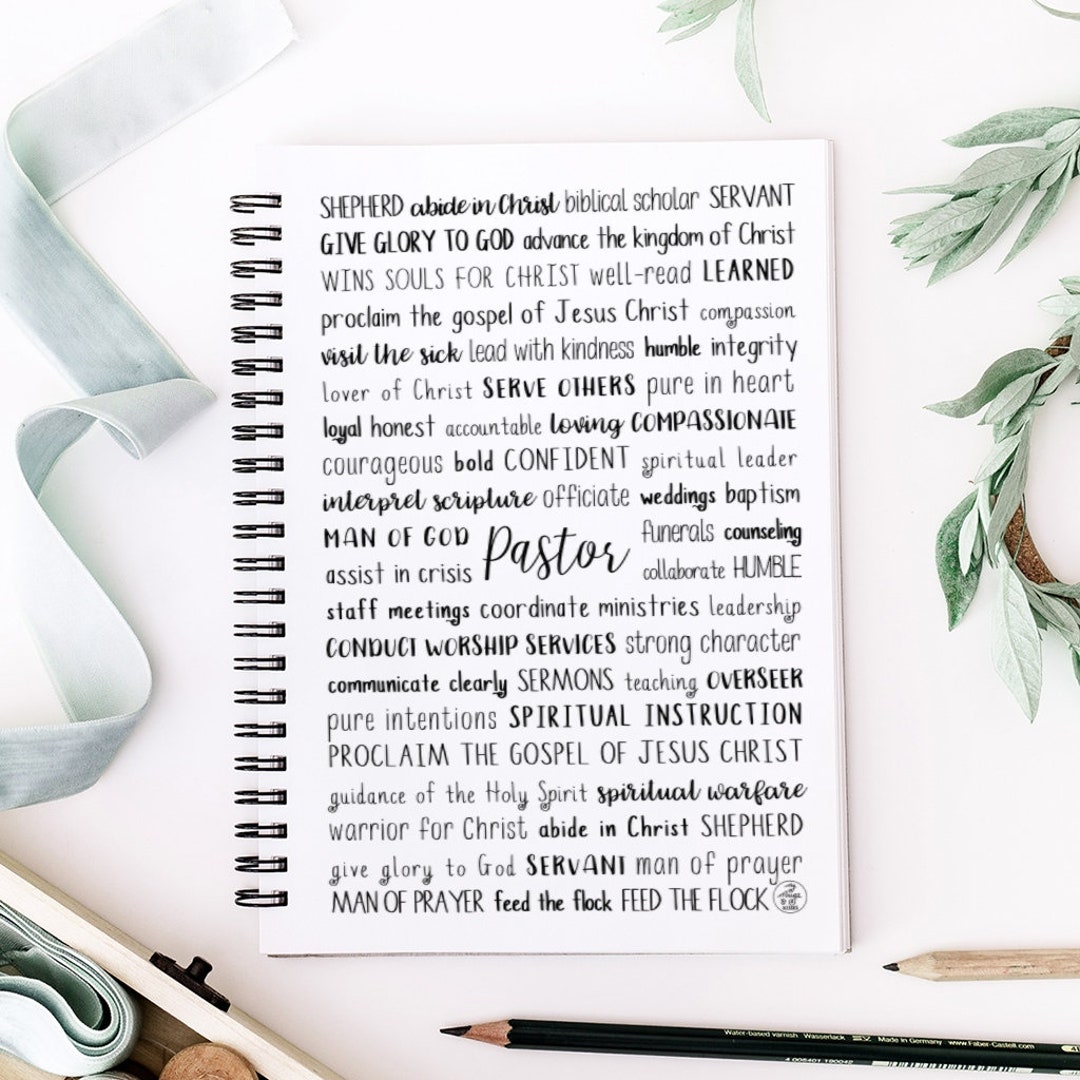 SHEPHERD abide in Christ biblical scholar SERVANT
GIVE GLORY TO GOD advance the kingdom of Christ
WINS SOULS FOR CHRIST well-read LEARNED
proclaim the gospel of Jesus Christ compassion
visit the sick lead with kindness humble integrity
lover of Christ SERVE OTHERS pure in heart
loyal honest accountable loving COMPASSIONATE
courageous bold CONFIDENT spiritual leader
interpret scripture officiate weddings baptism
MAN OF GOD Pastor funerals counseling
assist in crisis collaborate HUMBLE
staff meetings coordinate ministries leadership
CONDUCT WORSHIP SERVICES strong character
communicate clearly SERMONS teaching OVERSEER
pure intentions SPIRITUAL INSTRUCTION
PROCLAIM THE GOSPEL OF JESUS CHRIST
guidance of the Holy Spirit spiritual warfare
warrior for Christ abide in Christ SHEPHERD
give glory to God SERVANT man of prayer
MAN OF PRAYER feed the flock FEED THE FLOCK
Water-based varnish Wasserlack Made in Germany www.Faber-Castell.com
4 005401 190042